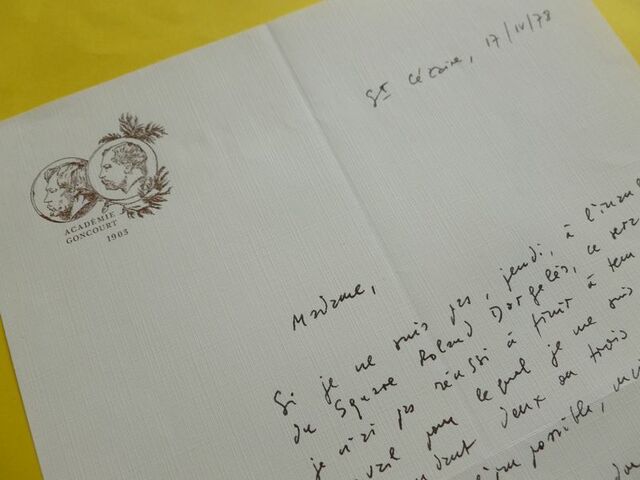 ACADÉMIE
GONCOURT
1903
St Cézaire, 17/IV/78
Madame,
Si je ne suis pas, jeudi, à l'inau
du Square Roland Dorgelès, ce sera
je n'ai pas réussi à finir à tem
vail pour lequel je me suis
dant deux ou trois
possible,